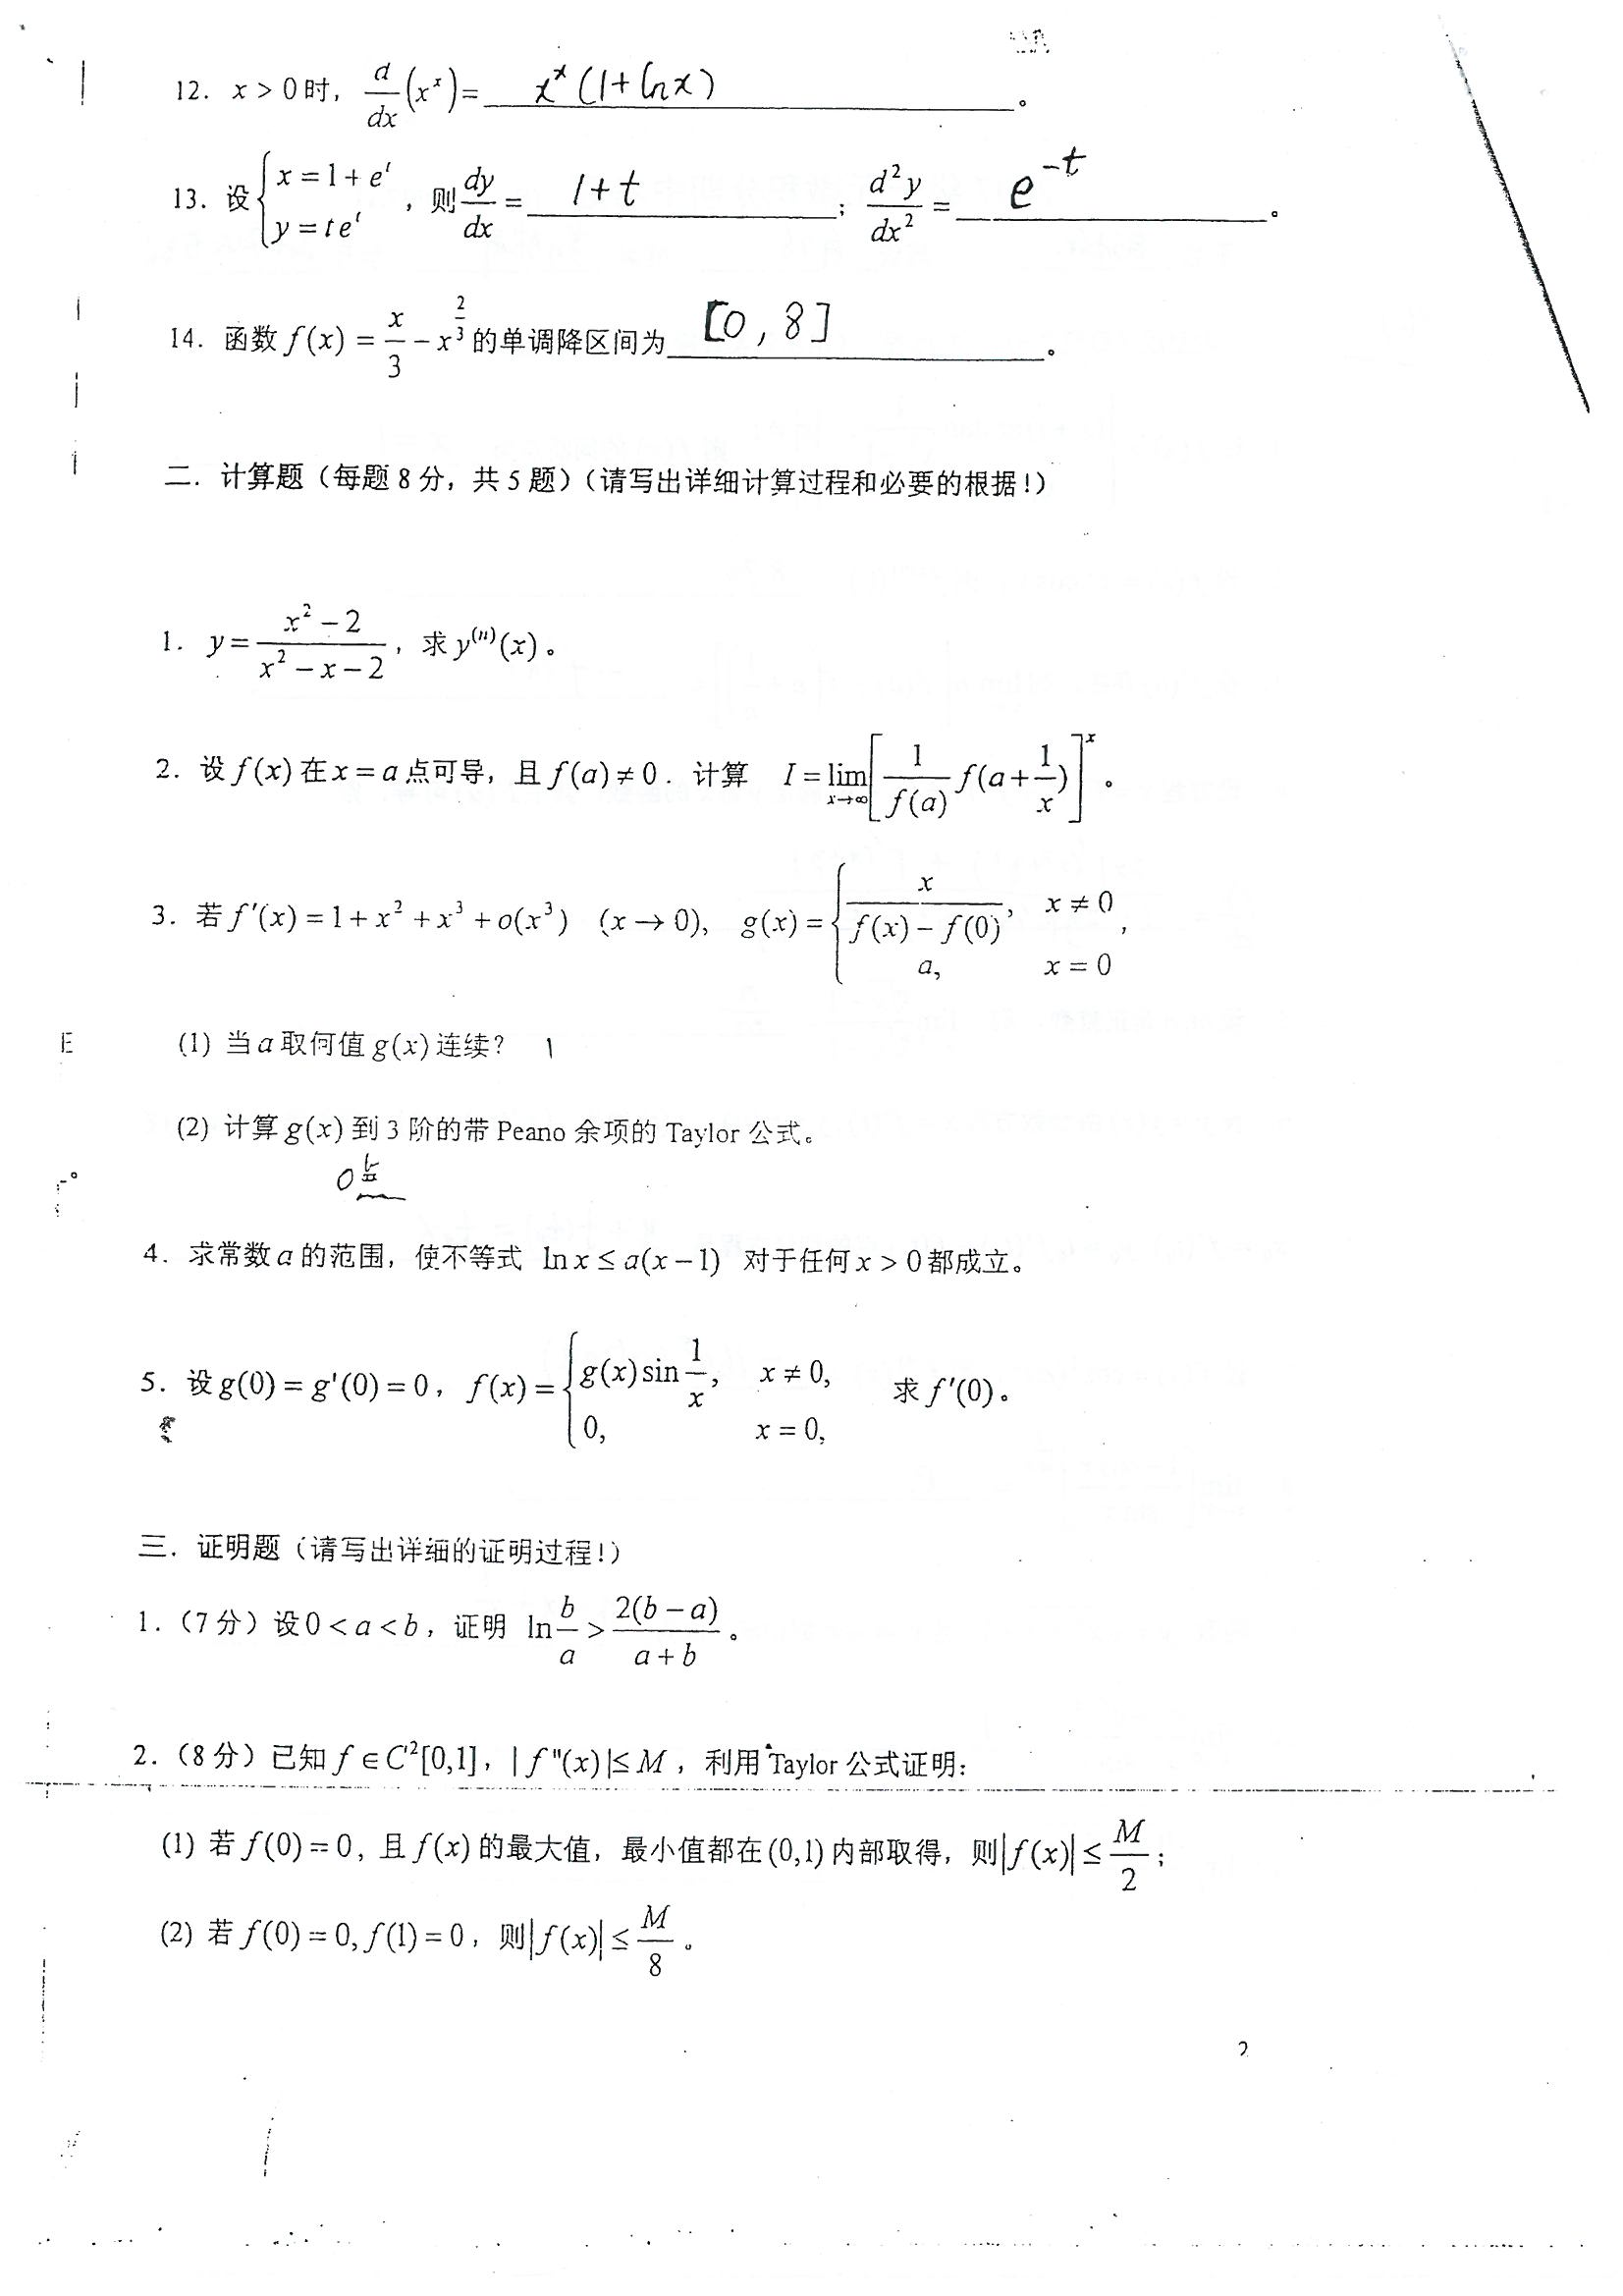 12. x > 0时, d/dx (x^x) = x^x (1+lnx) 。
13. 设 { x = 1 + e^t, y = te^t , 则 dy/dx = 1+t ; d²y/dx² = e^{-t} 。
14. 函数 f(x) = x/3 − x^{2/3} 的单调降区间为 [0, 8] 。
二. 计算题(每题8分,共5题)(请写出详细计算过程和必要的根据!)
1. y = (x² − 2)/(x² − x − 2), 求 y^{(n)}(x)。
2. 设 f(x) 在 x = a 点可导, 且 f(a) ≠ 0. 计算 I = lim_{x→∞} [ 1/f(a) f(a + 1/x) ]^x 。
3. 若 f'(x) = 1 + x² + x³ + o(x³) (x → 0), g(x) = { x/(f(x) − f(0)), x ≠ 0, a, x = 0 ,
(1) 当 a 取何值 g(x) 连续? 1
(2) 计算 g(x) 到 3 阶的带 Peano 余项的 Taylor 公式。
0点
4. 求常数 a 的范围, 使不等式 ln x ≤ a(x − 1) 对于任何 x > 0 都成立。
5. 设 g(0) = g'(0) = 0, f(x) = { g(x) sin 1/x, x ≠ 0, 0, x = 0, 求 f'(0)。
三. 证明题(请写出详细的证明过程!)
1.(7分)设 0 < a < b, 证明 ln b/a > 2(b − a)/(a + b) 。
2.(8分)已知 f ∈ C²[0,1], | f''(x) |≤ M , 利用 Taylor 公式证明:
(1) 若 f(0) = 0, 且 f(x) 的最大值, 最小值都在 (0,1) 内部取得, 则 |f(x)| ≤ M/2 ;
(2) 若 f(0) = 0, f(1) = 0, 则 |f(x)| ≤ M/8 。
2